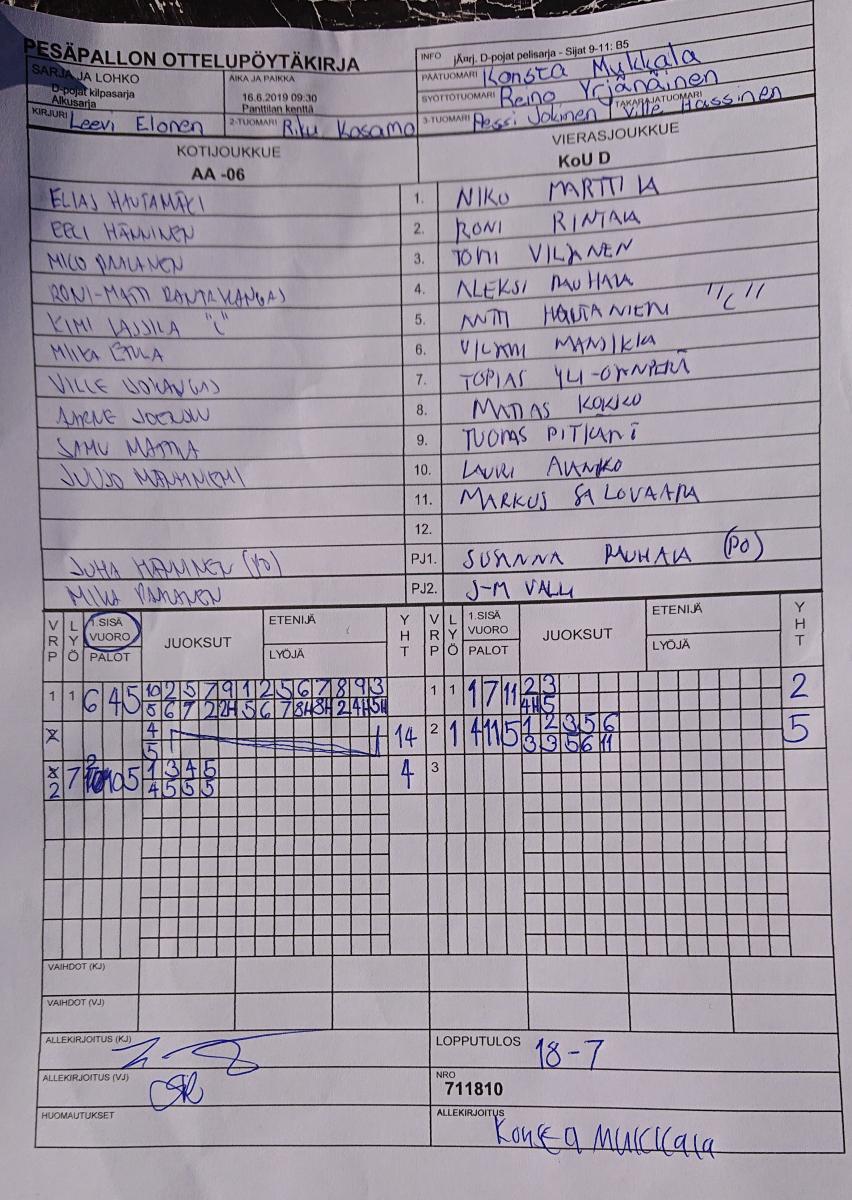 PESÄPALLON OTTELUPÖYTÄKIRJA
INFO jÄurj. D-pojat pelisarja - Sijat 9-11: B5
SARJA JA LOHKO
D-pojat kilpasarja
Alkusarja
AIKA JA PAIKKA
16.6.2019 09:30
Panttilan kenttä
PÄÄTUOMARI Konsta Mykkälä
SYÖTTÖTUOMARI Reino Yrjänäinen
KIRJURI Leevi Elonen
2-TUOMARI Riku Kosamo
3-TUOMARI Pessi Jokinen
TAKARAJATUOMARI Ville Hassinen
KOTIJOUKKUE
AA -06
VIERASJOUKKUE
KoU D
ELIAS HAUTAMÄKI 1. NIKO MARTTILA
EELI HÄNNINEN 2. RONI RINTALA
MICO PAALANEN 3. TOMI VILJANEN
RONI-MATTI RANTAKANGAS 4. ALEKSI RAUHALA
KIMI LASSILA "C" 5. ANTTI HAUTANIEMI "C"
MIIKA ETULA 6. VILJAMI MANSIKKA
VILLE JOKANGAS 7. TOPIAS YLI-
8. MATIAS KOKKO
SAMU 9. TUOMAS PITKÄNI
10. LAURI
11. MARKUS SALOVAARA
12.
JUHA HÄNNINEN (PO) PJ1. SUSANNA RAUHALA (PO)
MIKA PAALANEN PJ2. J-M VALLI
VRP LYÖ 1.SISÄ VUORO PALOT JUOKSUT ETENIJÄ LYÖJÄ YHT VRP LYÖ 1.SISÄ VUORO PALOT JUOKSUT ETENIJÄ LYÖJÄ YHT
1 1 6 4 5 10 2 5 7 9 1 2 5 6 7 8 9 3 1 1 1 7 11 2 3 2
5 6 7 2 2H 5 6 7 8H 8H 2 4H 5H 4H 5
4 14 2 1 4 11 5 1 2 3 5 6 5
5 3 3 5 6 11
7 2 10 5 1 3 4 5 4 3
2 4 5 5 5
VAIHDOT (KJ)
VAIHDOT (VJ)
ALLEKIRJOITUS (KJ)
LOPPUTULOS 18-7
ALLEKIRJOITUS (VJ)
NRO
711810
HUOMAUTUKSET
ALLEKIRJOITUS
Konsta Mukkala